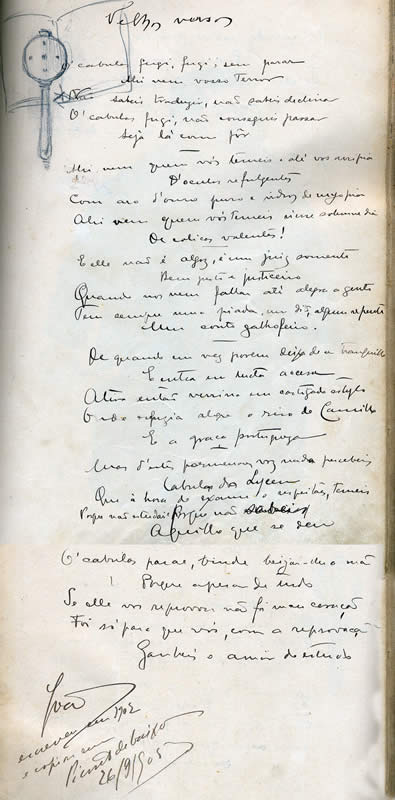 Velhos versos
O' cabulas fugi, fugi, sem parar
Ahi vem vosso terror
Não sabeis traduzir, não sabeis declinar
O' cabulas fugi, não conseguis passar
Seja lá com fôr
Ahi vem quem vós temeis e até vos
D'oculos refulgentes
Com aro d'ouro puro e vidros de
Ahi vem quem vós temeis
De valentes!
E elle não é algoz, é um juiz somente
Bem justo e justiceiro
Quando nos vem fallar até alegra a gente
Tem sempre uma piada, um dito, algum repente
Um conto galhofeiro.
De quando em vez porem deixa de ser tranquillo
E entra em lucta accesa
Atira então em castigado estylo
o riso de Camillo
E a graça portugueza
Mas d'estes pormenores vós nada percebeis
Cabulas do Lyceu
Que á hora do exame o respeitaes, temeis
Porque não estudais? Porque não sabeis
Aquillo que se deu
O' cabulas parae, vinde beijar-lhe a mão
! Porque apesar de tudo
Se elle vos reprovou não foi mau coração
Foi só para que vós, com a reprovação
Ganheis o amor do estudo
Ivo
escreveu em 1902
e copiou em
26/9/905